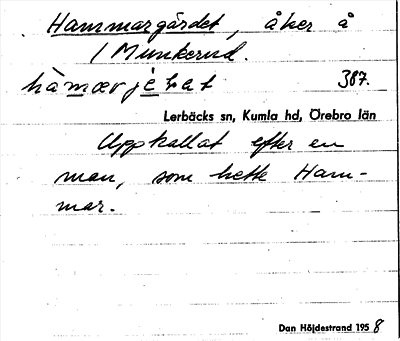 Hammargärdet, åker å
1 Munkerud.
hàmærjeḷat 387.
Lerbäcks sn, Kumla hd, Örebro län
Uppkallat efter en
man, som hette Ham-
mar.
Dan Höjdestrand 1958